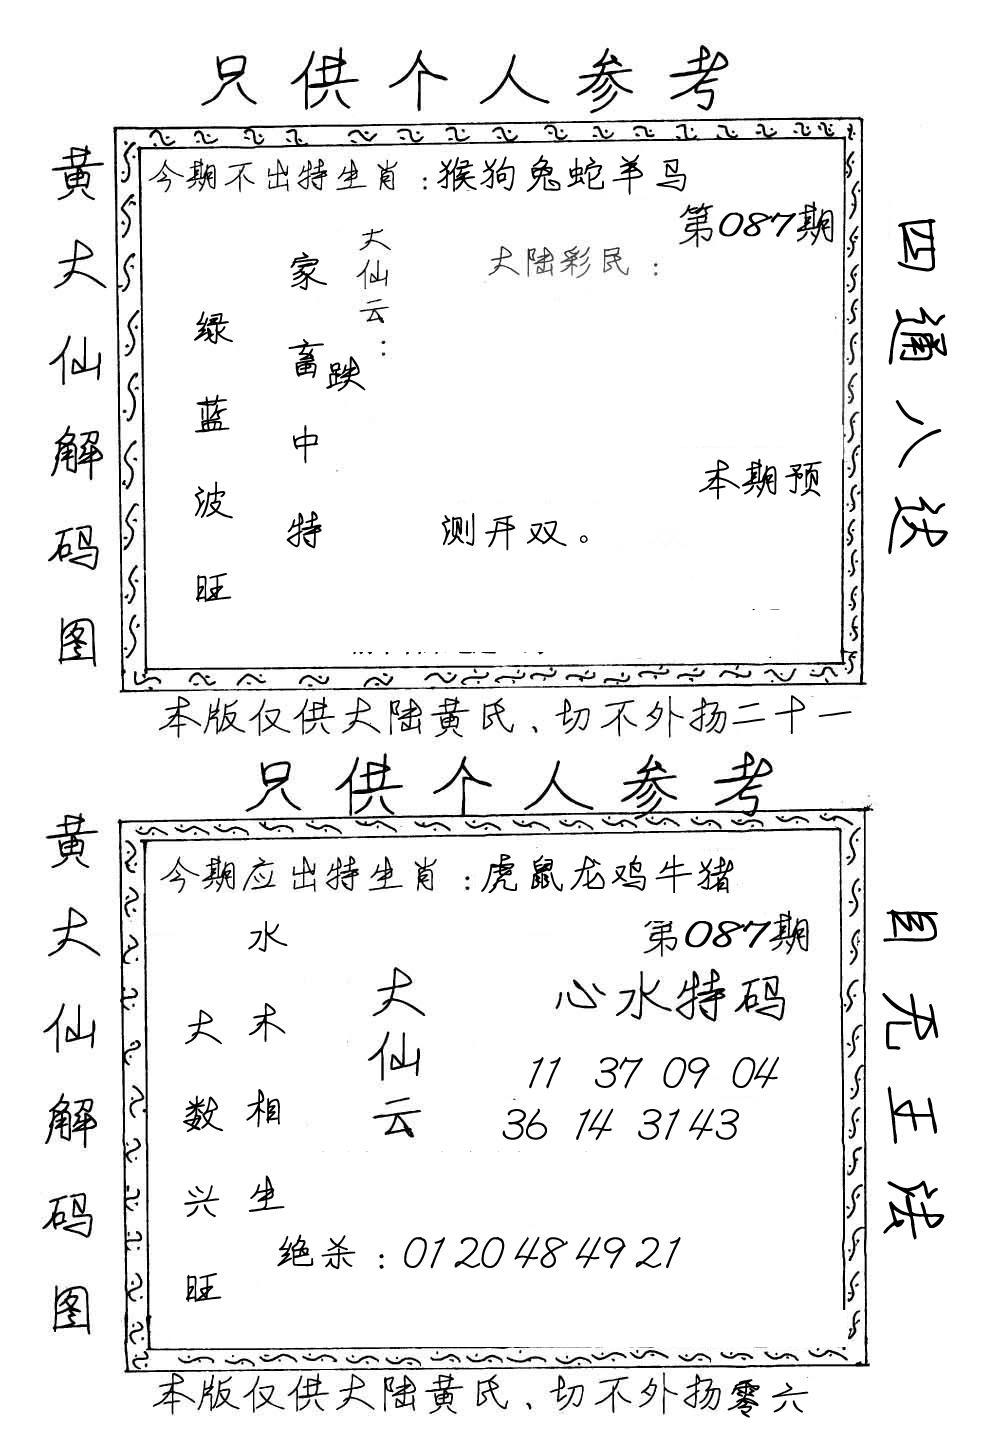 只供个人参考
黄大仙解码图
今期不出特生肖:猴狗兔蛇羊马
第087期
大仙云:
大陆彩民:
家畜中特
跌
绿蓝波旺
本期预
测开双。
四通八达
本版仅供大陆黄氏、切不外扬二十一
只供个人参考
黄大仙解码图
今期应出特生肖:虎鼠龙鸡牛猪
第087期
水木相生
大数兴旺
大仙云
心水特码
11 37 09 04
36 14 31 43
绝杀:01 20 48 49 21
自无王法
本版仅供大陆黄氏、切不外扬零六